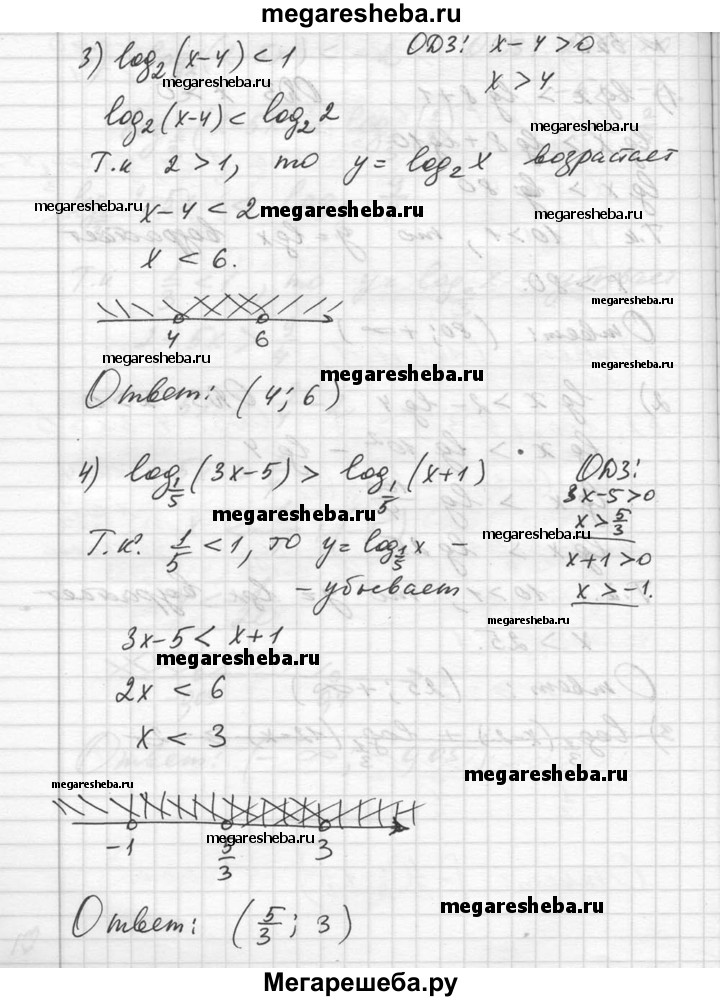 megaresheba.ru
3) log₂(x-4) < 1 ОДЗ: x-4>0
megaresheba.ru
x > 4
log₂(x-4) < log₂ 2
megaresheba.ru
Т.к 2 > 1, то y = log₂ x возрастает
megaresheba.ru x-4 < 2 megaresheba.ru megaresheba.ru
x < 6.
megaresheba.ru
4 6
megaresheba.ru
megaresheba.ru
Ответ: (4; 6)
4) log_{1/5}(3x-5) > log_{1/5}(x+1) ОДЗ:
3x-5>0
megaresheba.ru
x > 5/3
Т.к. 1/5 < 1, то y = log_{1/5} x - megaresheba.ru
x+1 > 0
- убывает x > -1.
megaresheba.ru
3x-5 < x+1
megaresheba.ru
2x < 6
x < 3
megaresheba.ru
megaresheba.ru
-1 5/3 3
megaresheba.ru
megaresheba.ru
Ответ: (5/3; 3)
Мегарешеба.ру